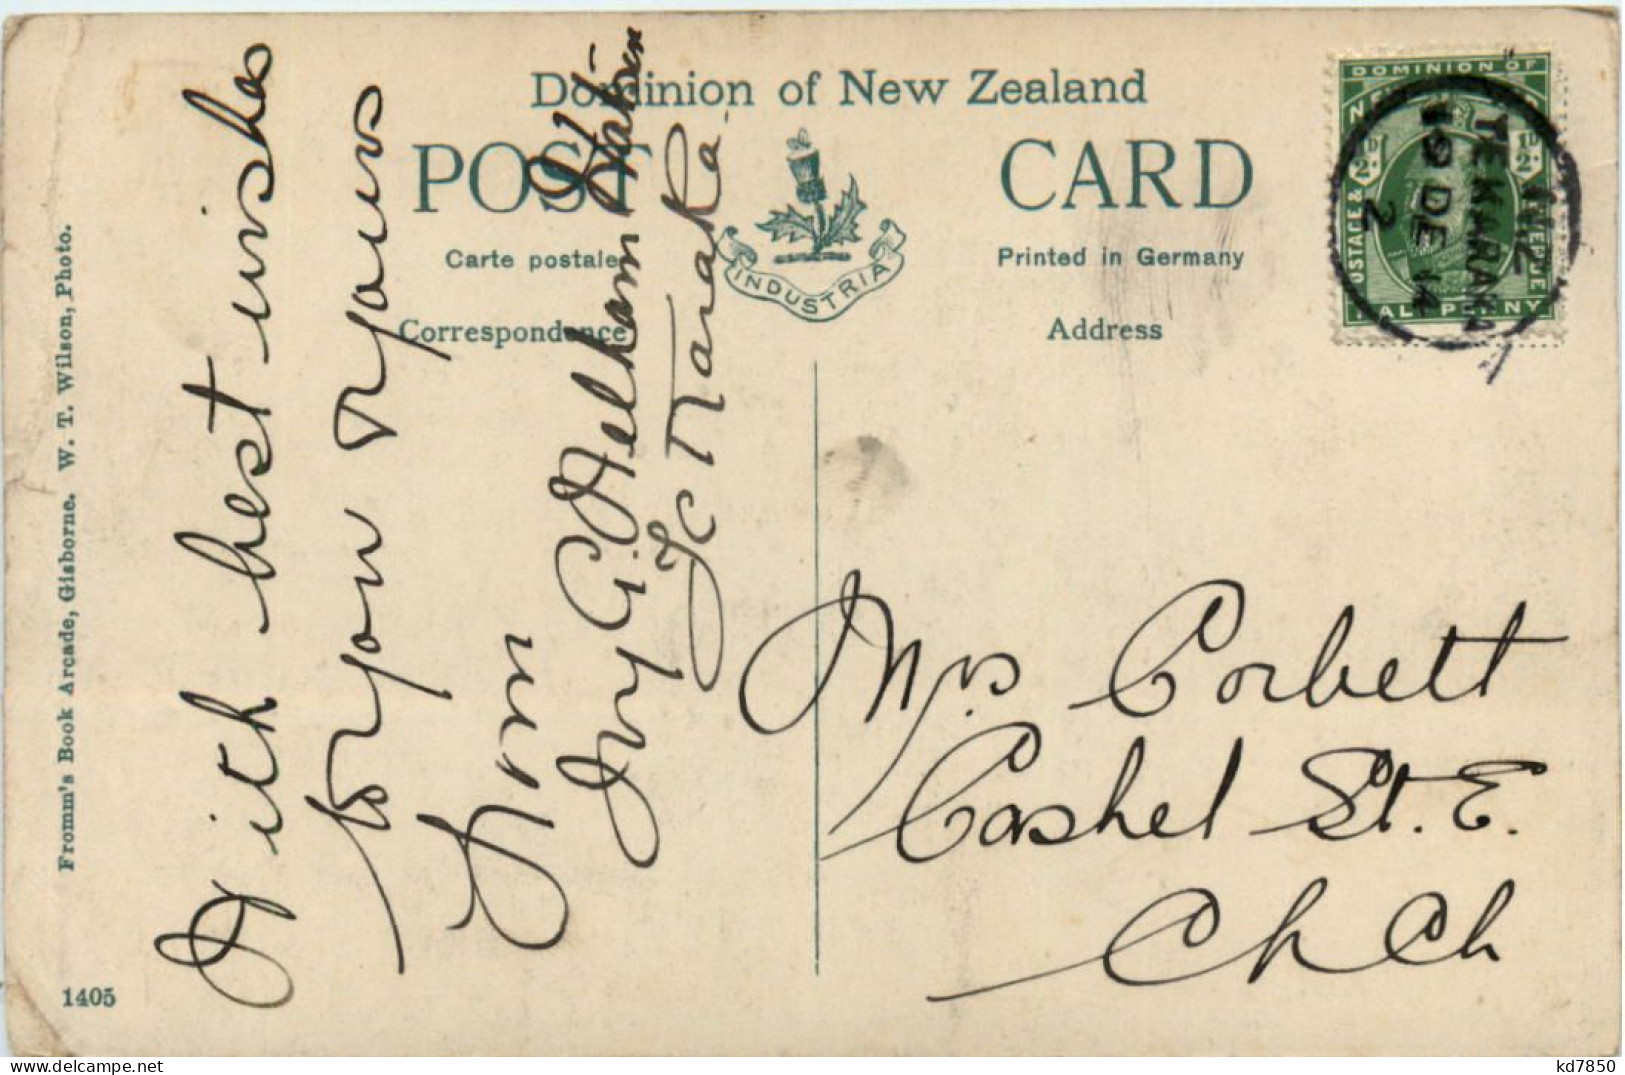 Dominion of New Zealand
POST CARD
Carte postale
Printed in Germany
INDUSTRIA
Correspondence
Address
DOMINION OF
POSTAGE & REVENUE
½D ½D
HALF PENNY
TE KARAKA
19 DE 14
2
N.Z
With best wishes
to you & yours
from
Ivy G.
Station
Te Karaka.
Mrs Corbett
Cashel St. E.
Ch Ch
Fromm's Book Arcade, Gisborne. W. T. Wilson, Photo.
1405
kd7850